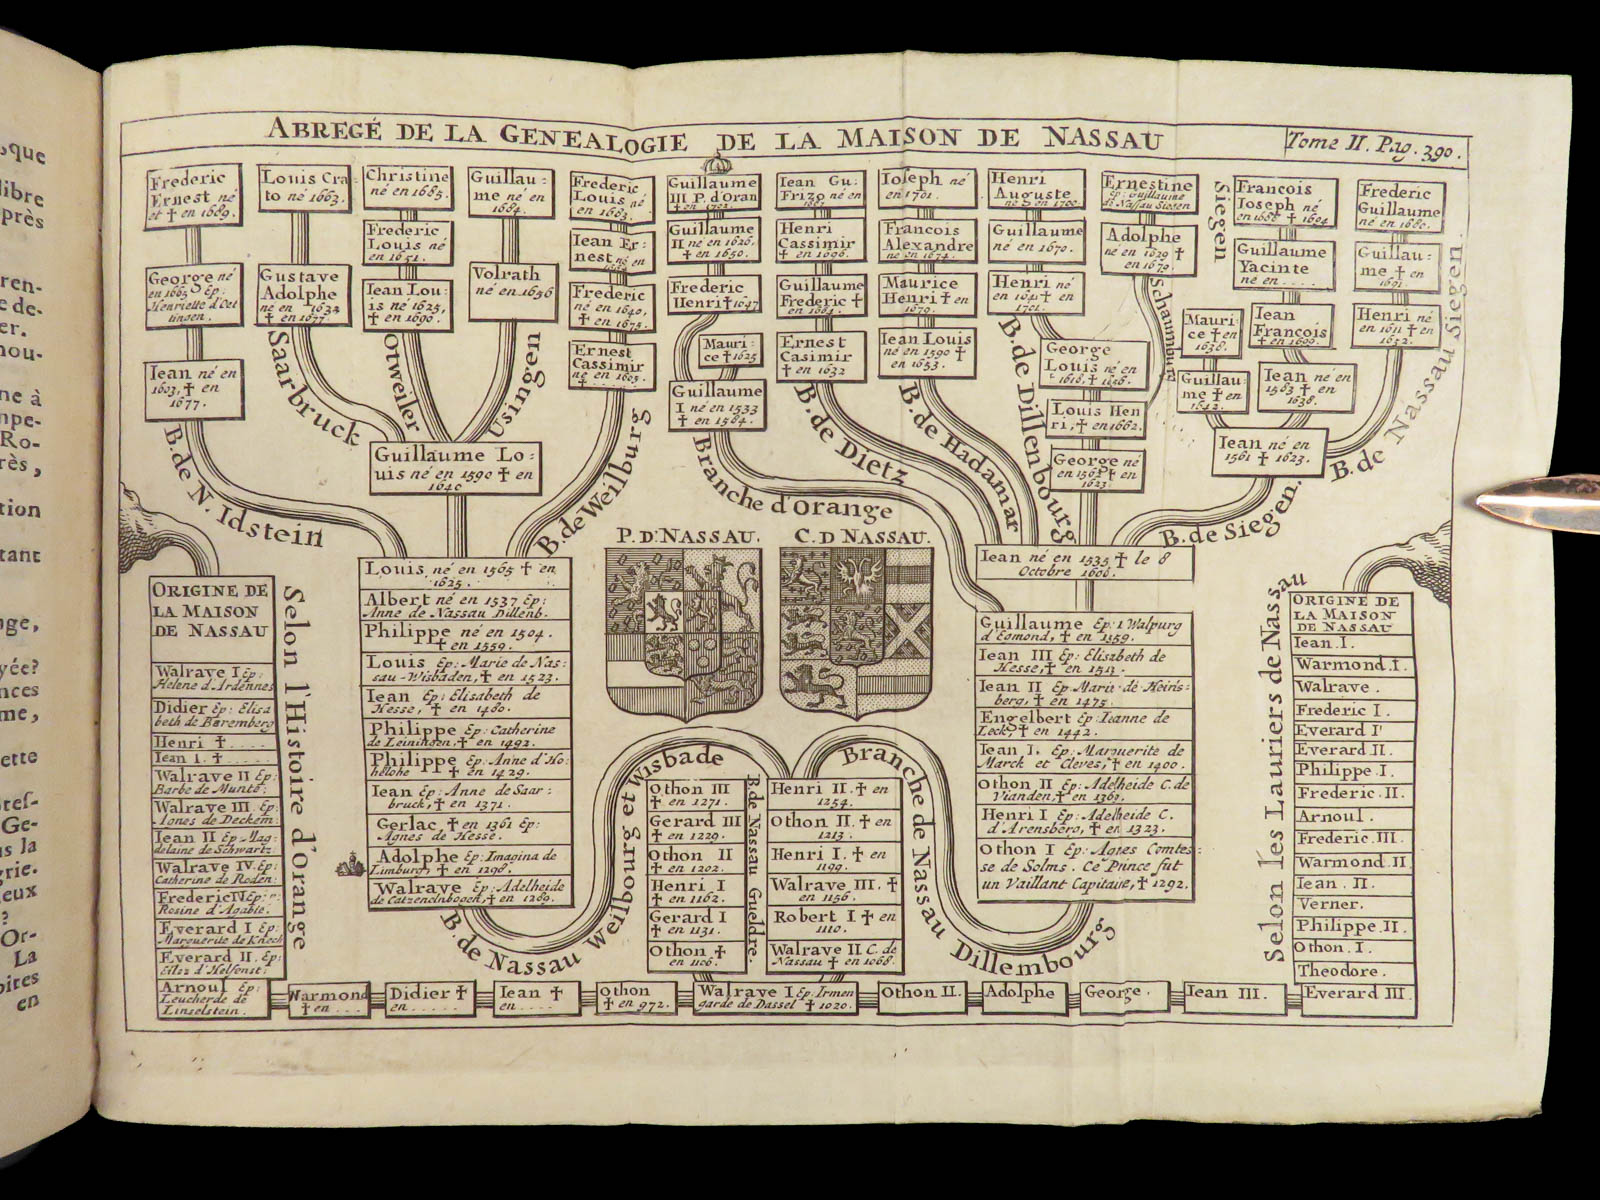 ABREGÉ DE LA GENEALOGIE DE LA MAISON DE NASSAU
Tome II. Pag. 390.
Frederic
Ernest né
et † en 1689.
George né
en 1665 Ep:
Henriette d'Oet
tingen.
Iean né en
1603, † en
1677.
B. de N. Idstein
Louis Cra-
to né 1663.
Gustave
Adolphe
né en 1632
† en 1677
Saarbruck
Christine
né en 1685.
Frederic
Louis né
en 1651.
Iean Lou-
is né 1625,
† en 1690.
Otweiler
Guillau-
me né en
1684.
Volrath
né en 1656
Usingen
Guillaume Lo-
uis né en 1590 † en
1640
Frederic
Louis né
en 1683.
Iean Er:
nest né en
Frederic
né en 1640,
† en 1675.
Ernest
Cassimir
né en 1607.
B. de Weilburg
Guillaume
III P. d'oran
† en 1702.
Guillaume
II né en 1626.
† en 1650.
Frederic
Henri † 1647
Mauri-
ce † 1625
Guillaume
I né en 1533
† en 1584.
Branche d'Orange
Iean Gu-
Frizo né en
1687
Henri
Cassimir
† en 1696.
Guillaume
Frederic †
en 1664.
Ernest
Casimir
† en 1632
B. de Dietz
Ioseph né
en 1701.
Francois
Alexandre
né en 1674.
Maurice
Henri † en
1679.
Iean Louis
né en 1590 †
en 1653.
B. de Hadamar
Henri
Auguste
né en 1700.
Guillaume
né en 1670.
Henri né
en 1641 † en
1701.
B. de Dillenbourg
Ernestine
Ep: Guillaume
de Nassau Siegen
Adolphe
né en 1629 †
en 1679.
Schaumburg
George
Louis né en
1618, † 1656.
Louis Hen
ri, † en 1662.
George né
en 1562 † en
1623.
Siegen
Francois
Ioseph né
en 1688 † 1694
Guillaume
Yacinte
né en ....
Iean
François
† en 1699.
Mauri-
ce † en
1638.
Guillau-
me † en
1642.
Iean né en
1583 † en
1638.
Iean né en
1561 † 1623.
Frederic
Guillaume
né en 1680.
Guillau-
me † en
1691.
Henri né
en 1611 † en
1652.
B. de Nassau Siegen.
B. de Siegen.
P. D'NASSAU.
C. D NASSAU.
ORIGINE DE
LA MAISON
DE NASSAU
Walrave I Ep:
Helene d'Ardennes
Didier Ep: Elisa
beth de Baremberg
Henri † ....
Iean I. † ....
Walrave II Ep:
Barbe de Munte:
Walrave III. Ep:
Agnes de Deckem:
Iean II Ep: Mag-
delaine de Schwartz:
Walrave IV. Ep:
Catherine de Roden:
Frederic IV Ep:
Rosine d'Agabie.
Everard I Ep:
Marguerite de Knoch
Everard II. Ep:
Eilez d'Helfenst:
Arnoul Ep:
Leucherde de
Linselstein.
Selon l'Histoire d'orange
Louis né en 1565 † en
1625.
Albert né en 1537 Ep:
Anne de Nassau Dillenb.
Philippe né en 1504.
† en 1559.
Louis Ep: Marie de Nas:
sau-Wisbaden, † en 1523.
Iean Ep: Elisabeth de
Hesse, † en 1480.
Philippe Ep: Catherine
de Leiningen, † en 1492.
Philippe Ep: Anne d'Ho
helohe † en 1429.
Iean Ep: Anne de Saar-
bruck, † en 1371.
Gerlac † en 1361 Ep:
Agnes de Hesse.
Adolphe Ep: Imagina de
Limburg, † en 1298.
Walrave Ep: Adelheide
de Catzenelnbogen, † en 1289.
B. de Nassau Weilbourg et Wisbade
Othon III
† en 1271.
Gerard III
† en 1229.
Othon II
† en 1202.
Henri I
† en 1162.
Gerard I
† en 1131.
Othon †
en 1106.
B. de Nassau Gueldre.
Henri II. † en
1254.
Othon II. † en
1213.
Henri I. † en
1199.
Walrave III. †
en 1156.
Robert I † en
1110.
Walrave II C. de
Nassau † en 1068.
Branche de Nassau Dillembourg
Iean né en 1535 † le 8
Octobre 1606.
Guillaume Ep: 1 Walpurg
d'Egmond, † en 1559.
Iean III Ep: Elisabeth de
Hesse, † en 1517.
Iean II Ep: Marie de Heins-
berg, † en 1475.
Engelbert Ep: Ieanne de
Leck † en 1442.
Iean I. Ep: Marguerite de
Marck et Cleves, † en 1400.
Othon II Ep: Adelheide C. de
Vianden, † en 1369.
Henri I Ep: Adelheide C.
d'Arensberg, † en 1323.
Othon I Ep: Agnes Comtes-
se de Solms. Ce Prince fut
un Vaillant Capitaine, † 1292.
Selon les Lauriers de Nassau
ORIGINE DE
LA MAISON
DE NASSAU
Iean. I.
Warmond. I.
Walrave.
Frederic I.
Everard I
Everard II.
Philippe. I.
Frederic. II.
Arnoul.
Frederic. III.
Warmond. II
Iean. II.
Verner.
Philippe. II.
Othon. I.
Theodore.
Everard III.
Warmond
† en ....
Didier †
en .....
Iean †
en ....
Othon
† en 972.
Walrave I Ep: Irmen
garde de Dassel † 1020.
Othon II.
Adolphe
George.
Iean III.
,que
libre
près
ren-
e de-
er.
nou-
ne à
mpe-
Ro-
rès,
tion
tant
nge,
yée?
nces
me,
ette
otes-
Ge-
us la
grie.
eux
?
Or-
La
oires
en